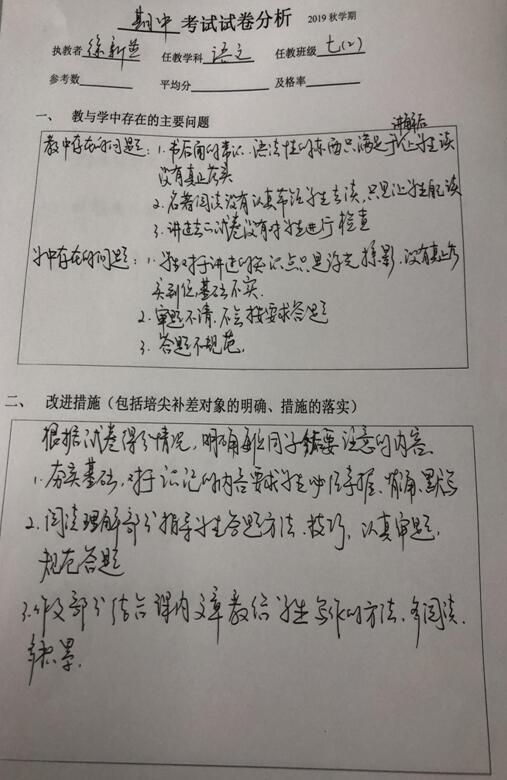 期中 考试试卷分析 2019 秋学期
执教者 徐新 任教学科 语文 任教班级 七(2)
参考数 平均分 及格率
一、 教与学中存在的主要问题
讲解后
教中存在的问题：1. 书后面的常识、语法性的东西只满足于让学生读
没有真正落实
2. 名著阅读没有认真带领学生去读，只是让学生自读
3. 讲过的试卷没有对学生进行检查
学中存在的问题：1. 学生对于讲过的知识点只是浮光掠影，没有真正落
实到位，基础不实.
2. 审题不清，不会按要求答题
3. 答题不规范.
二、 改进措施（包括培尖补差对象的明确、措施的落实）
根据试卷得分情况，明确每位同学需要注意的内容
1. 夯实基础，对于识记的内容要求学生必须掌握、背诵、默写
2. 阅读理解部分指导学生答题方法、技巧，认真审题，
规范答题
3. 作文部分结合课内文章教给学生写作的方法，多阅读、
多积累.